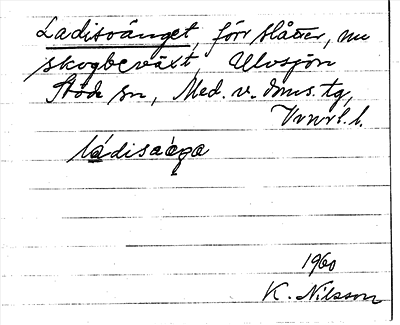 Ladisvänget, förr slåtter, nu
skogbeväxt, Ulvsjön
Stöde sn, Med. v. doms. tg,
Vrnrl. l.
ládisæ̀ŋa
1960
K. Nilsson